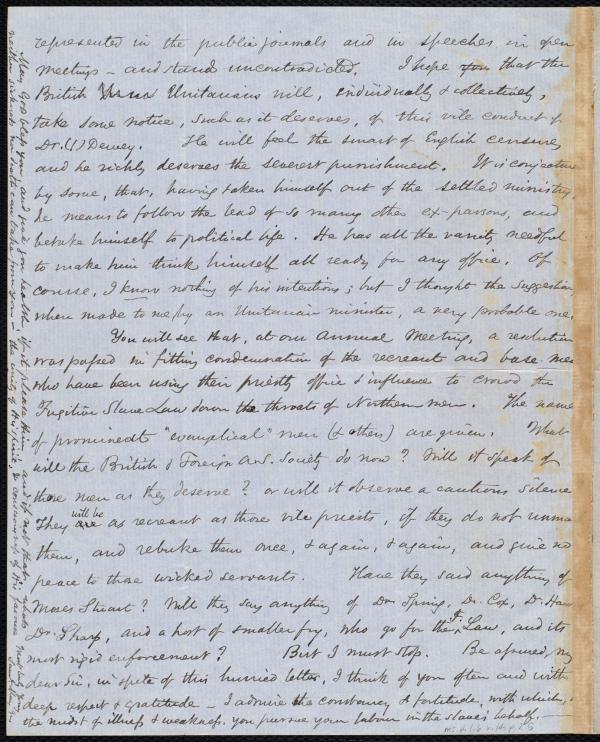 represented in the public journals and in speeches in open
meetings – and stand uncontradicted. I hope that the
British Unitarians will, individually & collectively,
take some notice, such as it deserves, of this vile conduct of
Dr. (!) Dewey. He will feel the smart of English censure,
and he richly deserves the severest punishment. It is conjectured
by some, that, having taken himself out of the settled ministry,
he means to follow the lead of so many other ex-parsons, and
betake himself to political life. He has all the vanity needful
to make him think himself all ready for any office. Of
course, I know nothing of his intentions; but I thought the suggestion,
when made to me by an Unitarian minister, a very probable one.
You will see that, at our Annual Meeting, a resolution
was passed in fitting condemnation of the recreant and base men
who have been using their priestly office & influence to crowd the
Fugitive Slave Law down the throats of Northern men. The names
of prominedt "evangelical" men (& others) are given. What
will the British & Foreign A.S. Society do now? Will it speak of
those men as they deserve? or will it observe a cautious silence
They will be as recreant as those vile priests, if they do not unmask
them, and rebuke them once, & again, & again, and give no
peace to those wicked servants. Have they said anything of
Moses Stuart? Will they say anything of Dr. Spring, Dr. Cox, D. Haw
Dr. Sharp, and a host of smaller fry, who go for the Law, and its
most rigid enforcement? But I must stop. Be assured, my
dear Sir, in spite of this hurried letter, I think of you often and with
deep respect & gratitude – I admire the constancy & fortitude, with which, in
the midst of illness & weakness, you pursue your labour in the slave's behalf. –
May God bless you, and give you health, if it please Him, and if not that,
neither sickness nor death can take from you – the unity of His spirit, & consciousness of His favour
Most truly yours,
Saml. May, Jr.